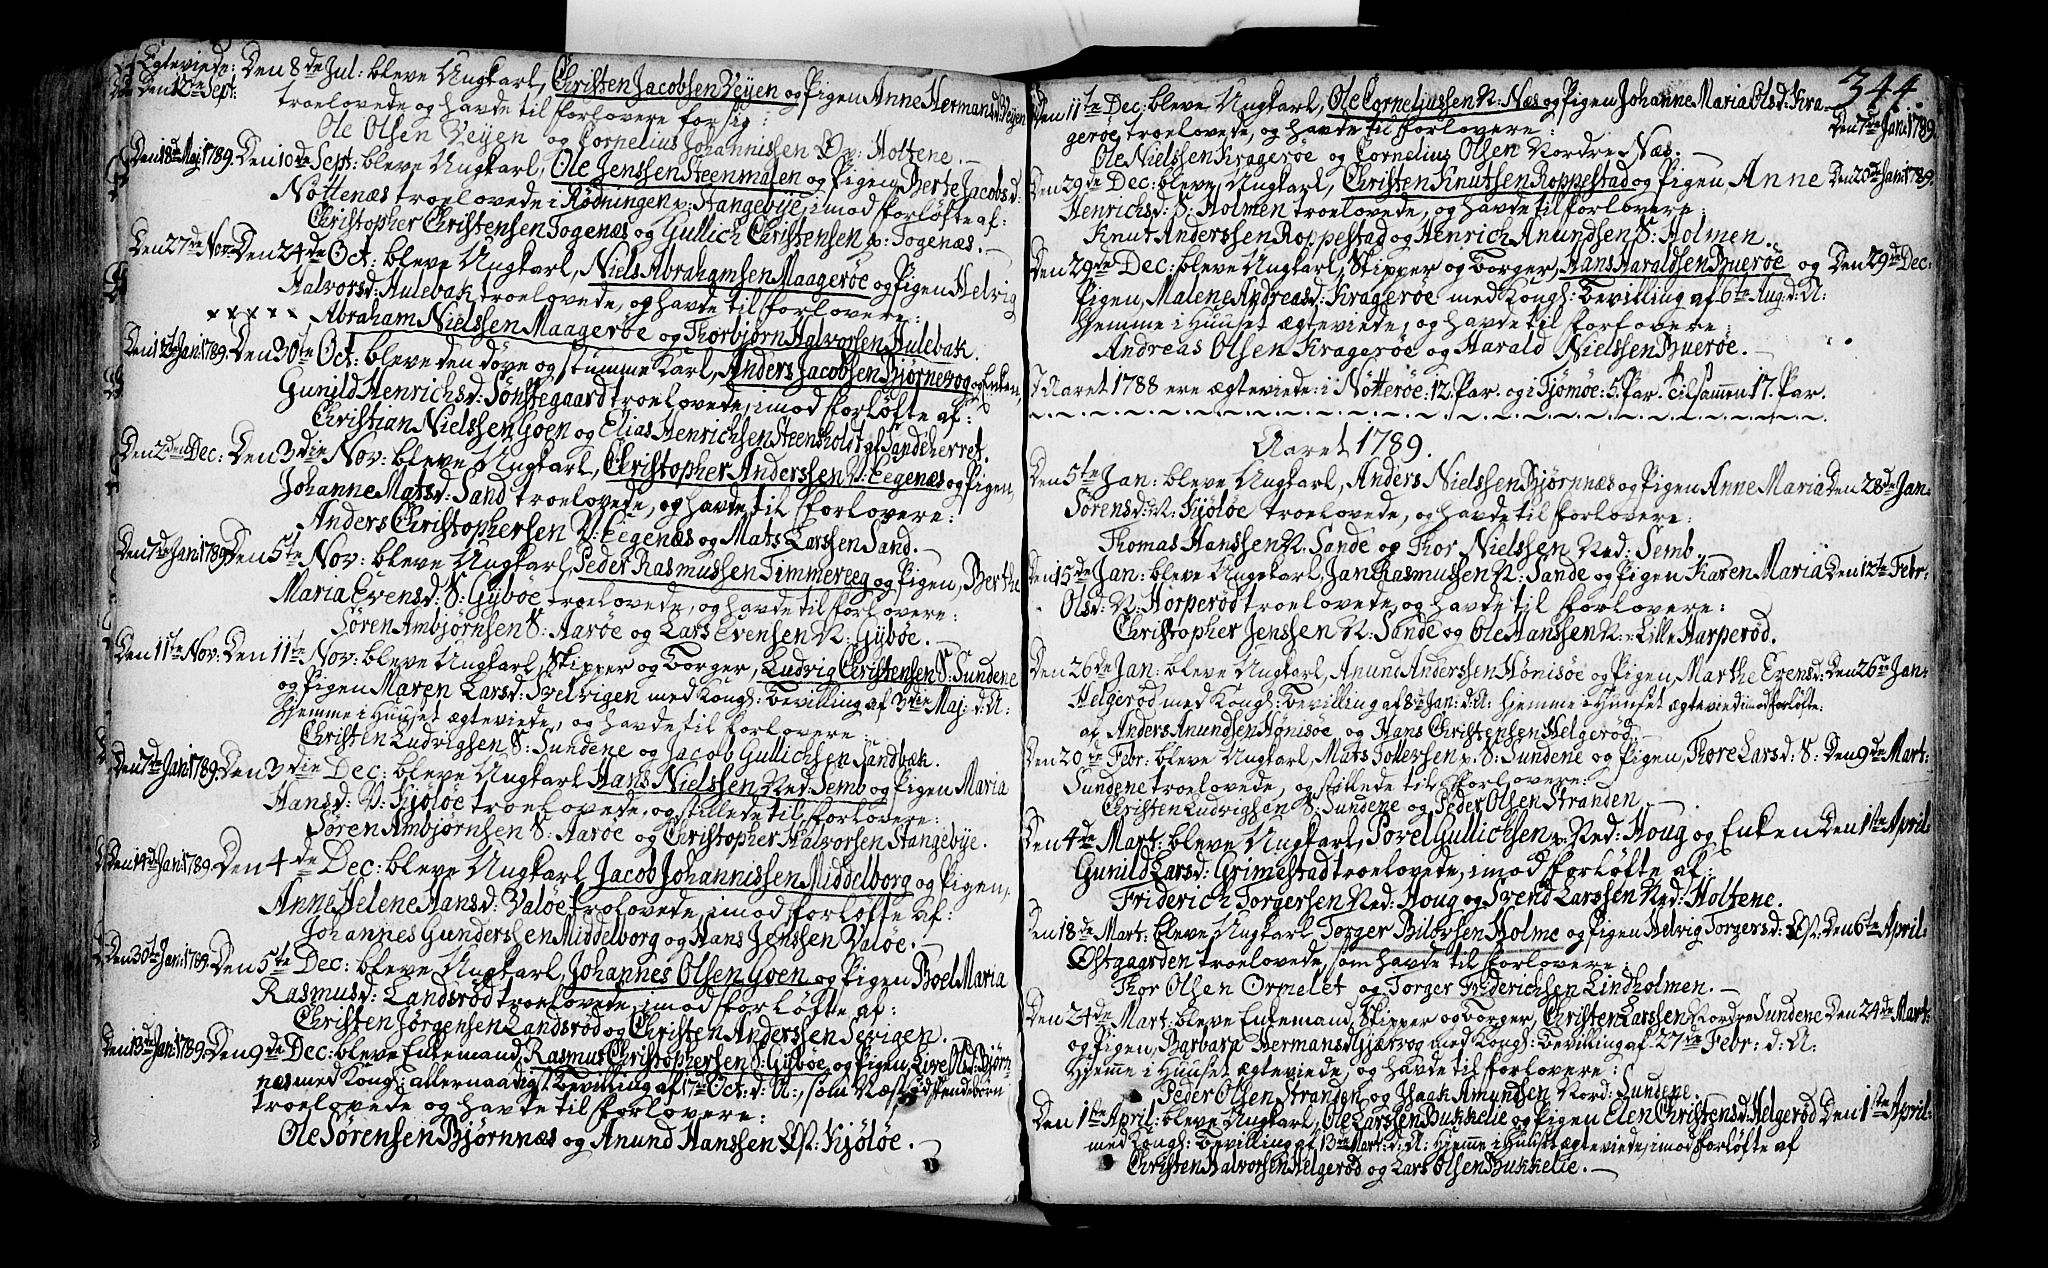 Egteviede: Den 8de Jul: bleve Ungkarl, Christen Jacobsen Veyen og Pigen Anne Hermansd: Veyen
Den 12te Sept: troelovede og havde til forlovere for sig:
Ole Olsen Veyen og Cornelius Johannissen Øv: Holtene.
Den 18de Maj: 1789. Den 10de Sept: bleve Ungkarl, Ole Jenssen Steenmalen og Pigen, Berte Jacobsd:
Nøttenæs troelovede i Rødningen p: Stangebÿe, imod forløfte af:
Christopher Christensen Togenæs og Gullich Christensen p: Togenæs.
Den 27de Nov: Den 24de Oct: bleve Ungkarl, Niels Abrahamsen Maagerøe og Pigen Helvig
Halvorsd: Hulebak troelovede, og havde til forlovere:
x x x x x Abraham Nielssen Maagerøe og Thorbjørn Halvorsen Hulebak.
Den 12te Jan: 1789. Den 30te Oct: bleve den døve og stumme Karl, Anders Jacobsen Bjørnevog og Enken,
Gunild Henrichsd: Sønstegaard troelovede, imod forløfte af:
Christian Nielssen Goen og Elias Henrichsen Steensholdt af Sandeherret.
Den 2den Dec: Den 3die Nov: bleve Ungkarl, Christopher Anderssen V: Eegenæs og Pigen,
Johanne Matsd: Sand troelovede, og havde til forlovere:
Anders Christophersen V: Eegenæs og Mats Larssen Sand.
Den 7de Jan: 1789. Den 5te Nov: bleve Ungkarl, Peder Rasmussen Timmereeg og Pigen, Berthe
Maria Evensd: S: Gÿbøe troelovede, og havde til forlovere:
Søren Ambjørnsen S: Aarøe og Lars Evensen N: Gÿbøe.
Den 11te Nov: Den 11te Nov: bleve Ungkarl, Skipper og Borger, Ludvig Christensen S: Sundene
og Pigen Maren Larsd: Svelvigen med Kongl: Bevilling af 3die Maj: d: A:
Hjemme i Huuset ægteviede, og havde til forlovere:
Christen Ludvigsen S: Sundene og Jacob Gullichsen Sandbek.
Den 7de Jan: 1789. Den 3die Dec: bleve Ungkarl Hans Nielssen Ned: Semb og Pigen Maria
Hansd: V: Kjøløe troelovede, og stillede til forlovere:
Søren Ambjørnsen S: Aarøe og Christopher Halvorsen Stangebÿe.
Den 14de Jan: 1789. Den 4de Dec: bleve Ungkarl Jacob Johannissen Middelborg og Pigen,
Anne Helene Hansd: Valøe troelovede, imod forløfte af:
Johannes Gunderssen Middelborg og Hans Jenssen Valøe.
Den 30te Jan: 1789. Den 5te Dec: bleve Ungkarl, Johannes Olsen Goen og Pigen Boel Maria
Rasmusd: Landsrød troelovede, imod forløfte af:
Christen Jørgensen Landsrød og Christen Anderssen Sevigen.
Den 13de Jan: 1789. Den 9de Dec: bleve Enkemand, Rasmus Christophersen S: Gÿbøe og Pigen, Live Olsd: Bjørn-
næs med Kongl: allernaadigst Bevilling af 17de Oct: d: A:, som Næstsødskendebørn
troelovede og havde til forlovere:
Ole Sørensen Bjørnnæs og Anund Hanssen Øst: Kjøløe.
344.
Den 11te Dec: bleve Ungkarl, Ole Corneliussen N: Næs og Pigen Johanne Maria Olsd: Kra-
gerøe troelovede, og havde til forlovere: Den 7de Jan: 1789.
Ole Nielssen Kragerøe og Cornelius Olsen Nordre Næs.
Den 29de Dec: bleve Ungkarl, Christen Knutsen Roppestad og Pigen, Anne Den 20de Jan: 1789.
Henrichsd: S: Holmen troelovede, og havde til forlovere:
Knut Anderssen Roppestad og Henrich Anundsen S: Holmen.
Den 29de Dec: bleve Ungkarl, Skipper og Borger, Hans Haraldsen Buerøe og Den 29de Dec:
Pigen, Malene Andreasd: Kragerøe med Kongl: Bevilling af 6te Aug: d: A:
Hjemme i Huuset ægteviede, og havde til forlovere:
Andreas Olsen Kragerøe og Harald Nielssen Buerøe.
I Aaret 1788 ere ægteviede: i Nøtterøe: 12. Par. og i Tjømøe: 5. Par. Tilsammen 17. Par.
Aaret 1789.
Den 5te Jan: bleve Ungkarl, Anders Nielssen Bjørnnæs og Pigen Anne Maria Den 28de Jan:
Sørensd: N: Kjøløe troelovede, og havde til forlovere:
Thomas Hanssen N: Sande og Thor Nielssen Ned: Semb.
Den 15de Jan: bleve Ungkarl, Jan Rasmussen N: Sande og Pigen Karen Maria Den 12te Febr:
Olsd: N: Horperød troelovede, og havde til forlovere:
Christopher Jenssen N: Sande og Ole Hanssen N: Lille Harperød.
Den 26de Jan: bleve Ungkarl, Anund Anderssen Hønisøe og Pigen, Marthe Evensd: Den 26de Jan:
Helgerød med Kongl: Bevilling af 8de Jan: d: A: Hjemme i Huuset ægteviede imod forløfte:
af Anders Anundsen Hønisøe og Hans Christensen Helgerød.
Den 20de Febr: bleve Ungkarl, Mats Tollefsen p: S: Sundene og Pigen, Thore Larsd: S: Den 9de Mart:
Sundene troelovede, og stillede til forlovere:
Christen Ludvigsen S: Sundene og Peder Olsen Stranden.
Den 4de Mart: bleve Ungkarl, Povel Gullichsen p: Ned: Houg og Enken Den 1ste April:
Gunild Larsd: Grimestad troelovede, imod forløfte af:
Friderich Torgersen Ned: Houg og Svend Larssen Ned: Holtene.
Den 18de Mart: bleve Ungkarl, Torger Bilovsen Holme og Pigen Helvig Torgersd: Øst: Den 6te April:
Østgaarden troelovede, som havde til forlovere:
Thor Olsen Ormelet og Torger Friderichsen Lindholmen.
Den 24de Mart: bleve Enkemand, Skipper og Borger, Christen Larssen Nordre Sundene Den 24de Mart:
og Pigen, Barbara Hermansd: Gjærvog med Kongl: Bevilling af 27de Febr: d: A:
Hjemme i Huuset ægteviede, og havde til forlovere:
Peder Olsen Stranden og Isaak Amundsen Nord: Sundene.
Den 1ste April: bleve Ungkarl, Ole Larssen Bukkelie og Pigen Elen Christensd: Helgerød Den 1ste April:
med Kongl: Bevilling af 13de Mart: d: A: Hjemme i Huuset ægteviede, imod forløfte af
Christen Halvorsen Helgerød og Lars Olsen Bukkelie.